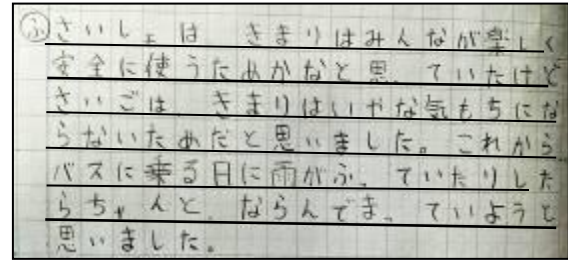 ふさいしょは きまりはみんなが楽しく
安全に使うためかなと思っていたけど
さいごは、きまりはいやな気もちにな
らないためだと思いました。これから
バスに乗る日に雨がふっていたりした
らちゃんと、ならんでまっていようと
思いました。